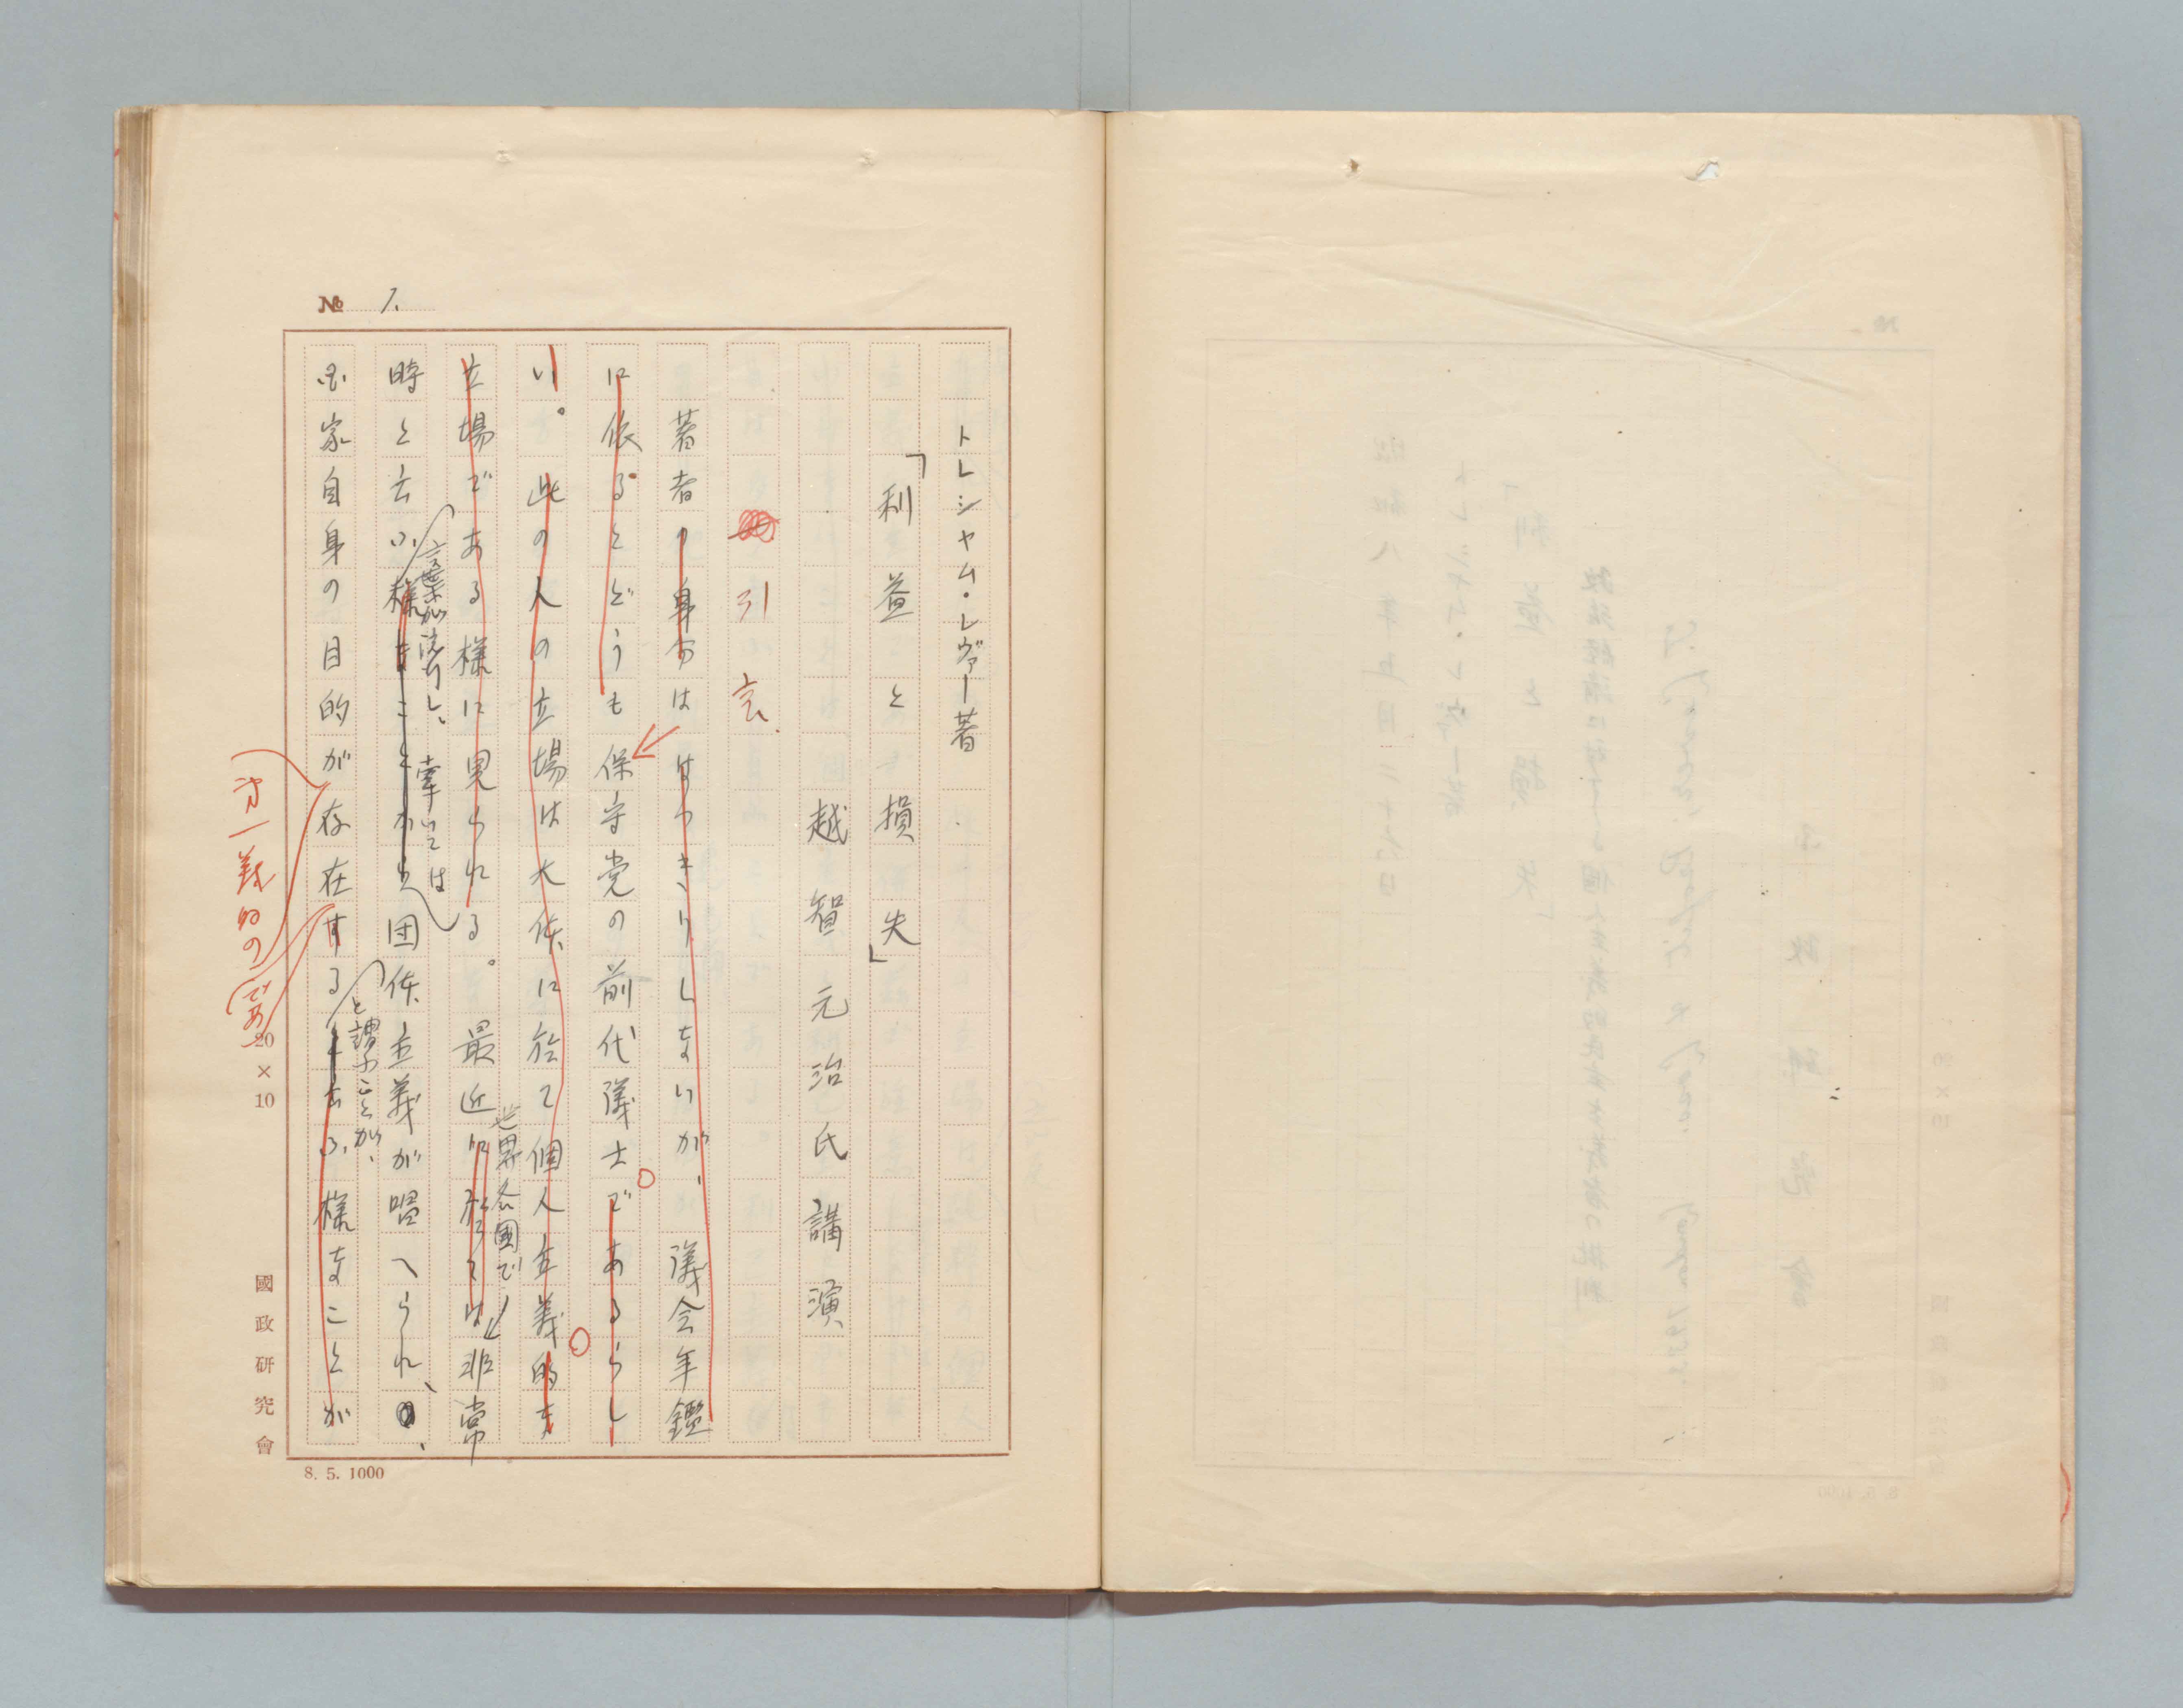 № 1.
トレシャム・レヴァー著
「利益と損失」
越智元治氏講演
引言
著者の身分ははっきりしないが、議会年鑑
に依るとどうも保守党の前代議士であるらし
い。此の人の立場は大体に於て個人主義的な
立場である様に見られる。最近に於ては非常
世界各國で
時と云ふ様なことから団体主義が唱へられ、
言葉が流行し、牽いては
国家自身の目的が存在すると云ふ様なことが
と謂ふことが、
第一義的の
であ
20×10
國政研究會
8. 5. 1000